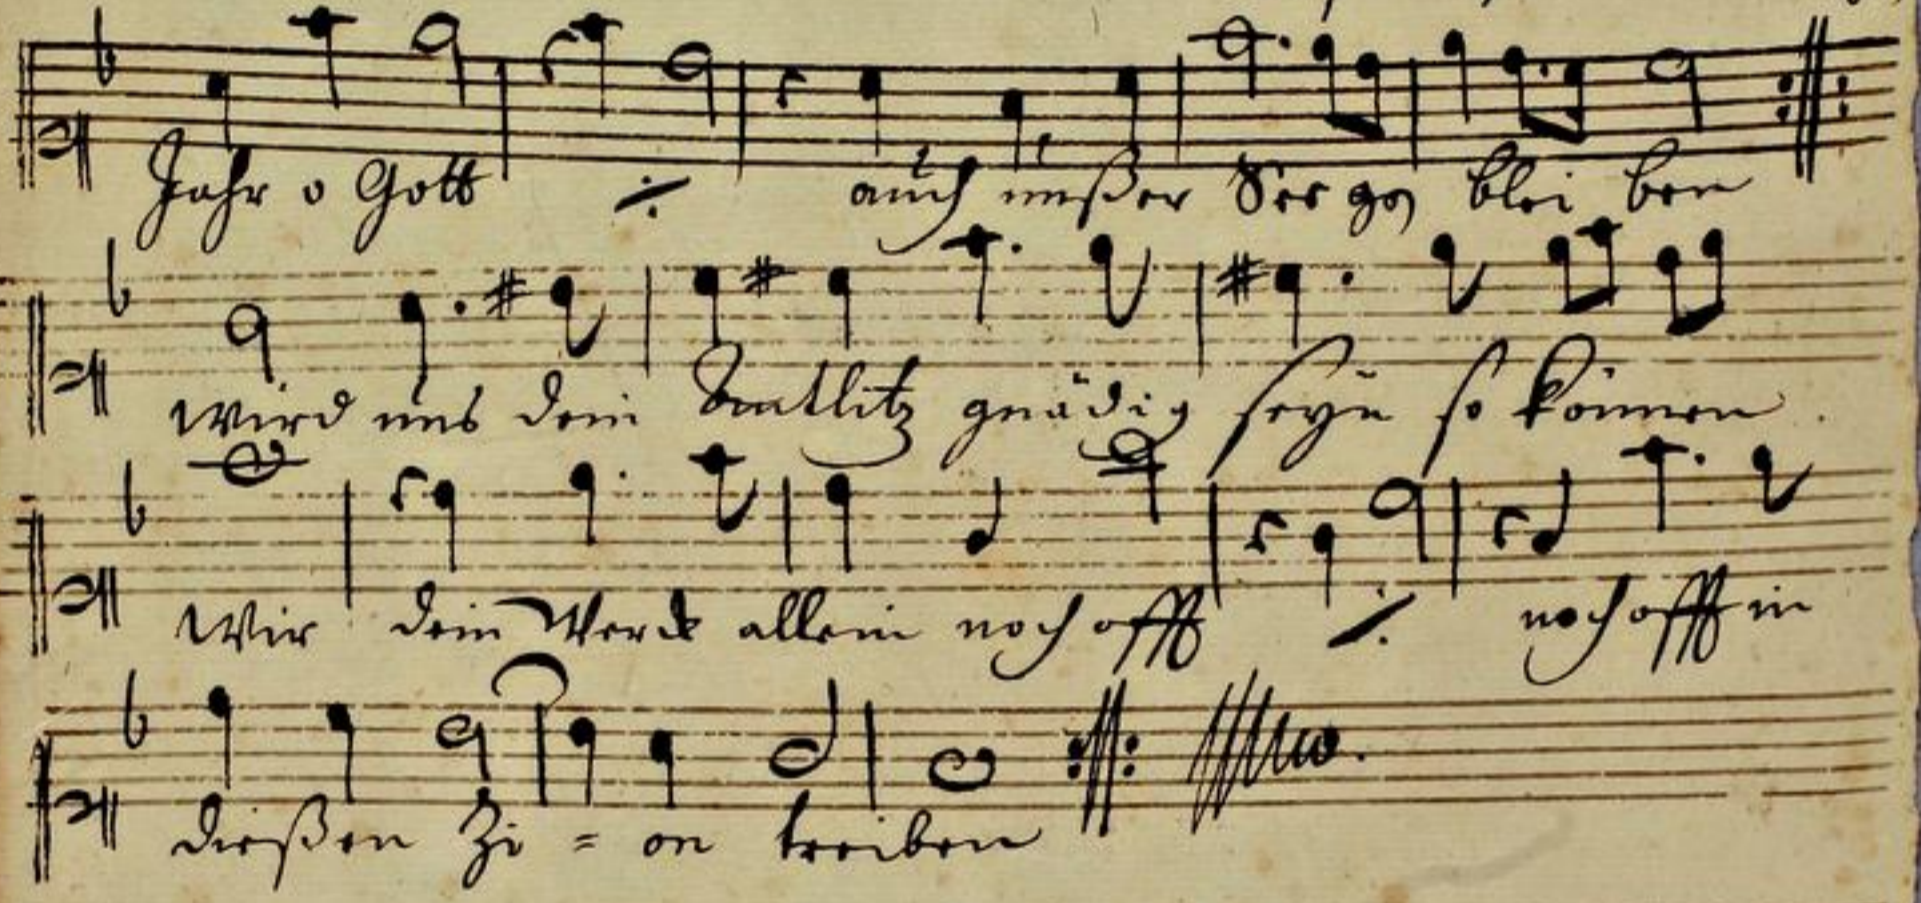 Jahr o Gott ⁒ auch unßer Sorge bleiben
wird uns dein Antlitz gnädig seyn so können
Wir dein Werck allein noch offt ⁒ noch offt in
dießen Zi = on treiben